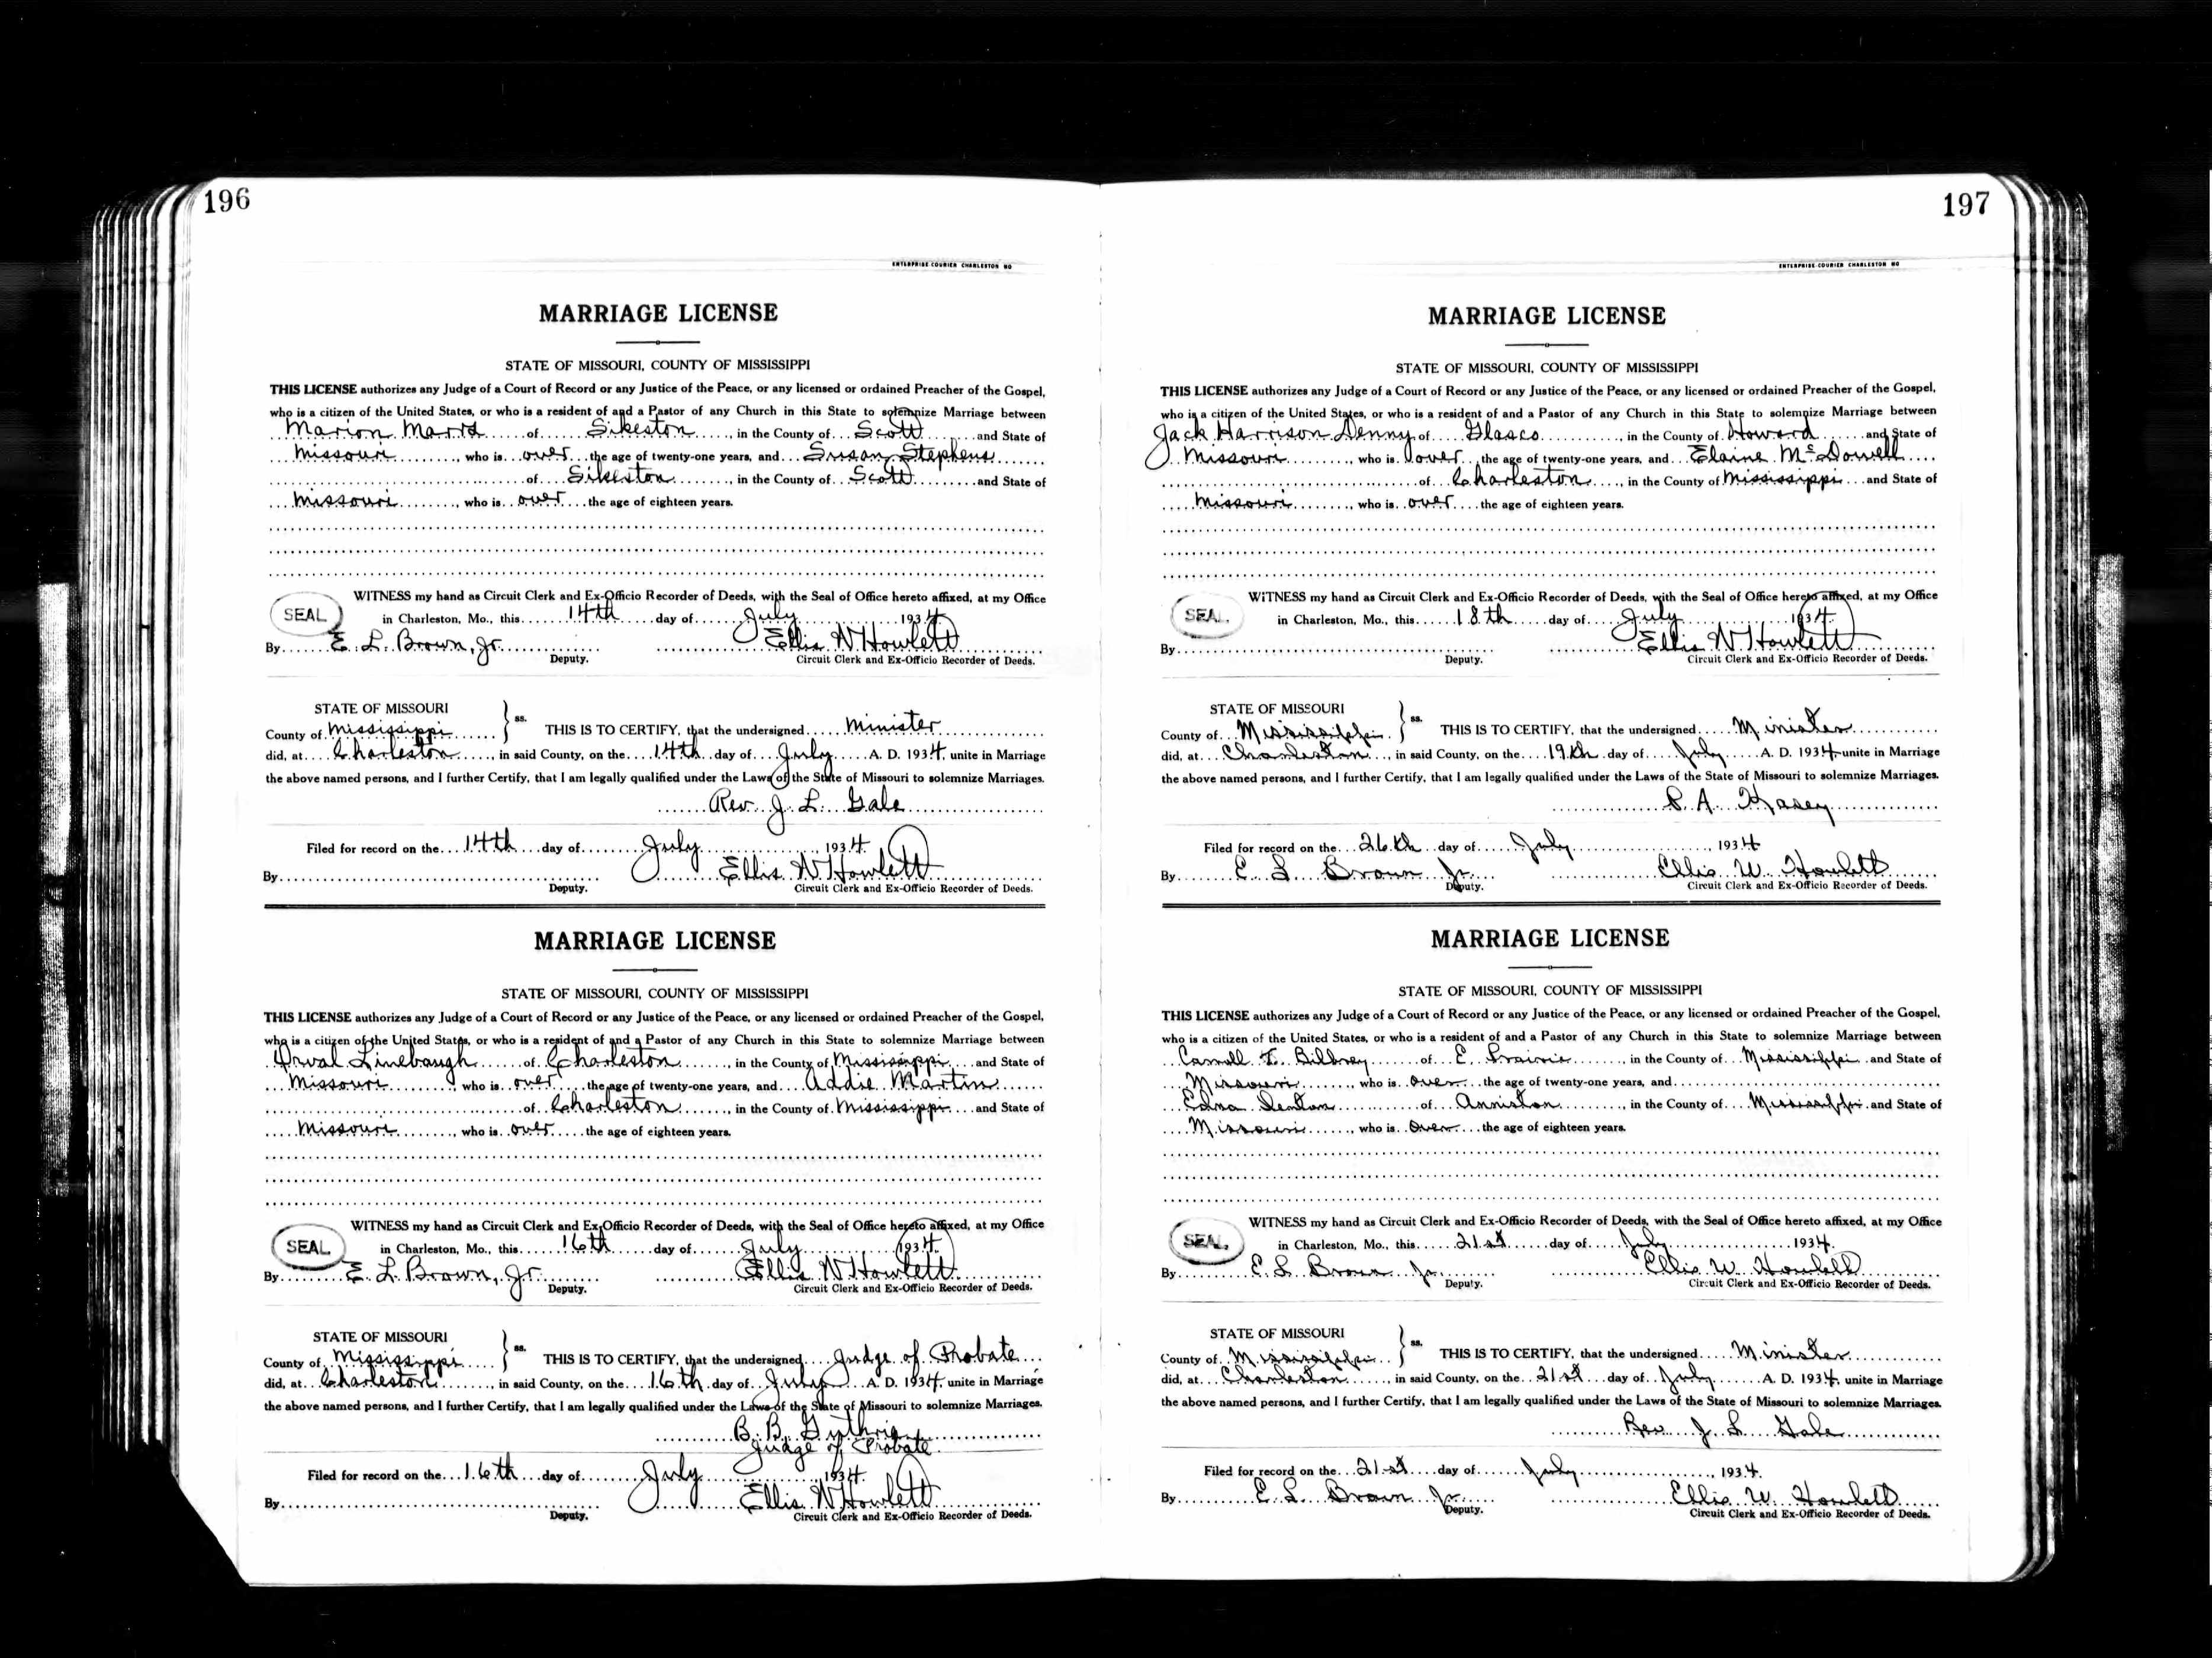 196
ENTERPRISE-COURIER CHARLESTON MO
MARRIAGE LICENSE
STATE OF MISSOURI, COUNTY OF MISSISSIPPI
THIS LICENSE authorizes any Judge of a Court of Record or any Justice of the Peace, or any licensed or ordained Preacher of the Gospel,
who is a citizen of the United States, or who is a resident of and a Pastor of any Church in this State to solemnize Marriage between
Marion of Sikeston, in the County of Scott and State of
Missouri, who is over the age of twenty-one years, and Susan Stephens
of Sikeston, in the County of Scott and State of
Missouri, who is over the age of eighteen years.
WITNESS my hand as Circuit Clerk and Ex-Officio Recorder of Deeds, with the Seal of Office hereto affixed, at my Office
SEAL in Charleston, Mo., this 14th day of July 1934
By E. L. Brown, Jr. Ellis W Howlett
Deputy. Circuit Clerk and Ex-Officio Recorder of Deeds.
STATE OF MISSOURI
County of Mississippi ss. THIS IS TO CERTIFY, that the undersigned Minister
did, at Charleston, in said County, on the 14th day of July A. D. 1934, unite in Marriage
the above named persons, and I further Certify, that I am legally qualified under the Laws of the State of Missouri to solemnize Marriages.
Rev. J. L. Gale
Filed for record on the 14th day of July, 1934.
By Ellis W Howlett
Deputy. Circuit Clerk and Ex-Officio Recorder of Deeds.
MARRIAGE LICENSE
STATE OF MISSOURI, COUNTY OF MISSISSIPPI
THIS LICENSE authorizes any Judge of a Court of Record or any Justice of the Peace, or any licensed or ordained Preacher of the Gospel,
who is a citizen of the United States, or who is a resident of and a Pastor of any Church in this State to solemnize Marriage between
Orval Linebaugh of Charleston, in the County of Mississippi and State of
Missouri, who is over the age of twenty-one years, and Addie Martin
of Charleston, in the County of Mississippi and State of
Missouri, who is over the age of eighteen years.
WITNESS my hand as Circuit Clerk and Ex-Officio Recorder of Deeds, with the Seal of Office hereto affixed, at my Office
SEAL in Charleston, Mo., this 16th day of July 1934.
By E. L. Brown, Jr. Ellis W Howlett
Deputy. Circuit Clerk and Ex-Officio Recorder of Deeds.
STATE OF MISSOURI
County of Mississippi ss. THIS IS TO CERTIFY, that the undersigned Judge of Probate
did, at Charleston, in said County, on the 16th day of July A. D. 1934, unite in Marriage
the above named persons, and I further Certify, that I am legally qualified under the Laws of the State of Missouri to solemnize Marriages.
B. B. Guthrie
Judge of Probate
Filed for record on the 16th day of July, 1934.
By Ellis W Howlett
Deputy. Circuit Clerk and Ex-Officio Recorder of Deeds.
197
ENTERPRISE-COURIER CHARLESTON MO
MARRIAGE LICENSE
STATE OF MISSOURI, COUNTY OF MISSISSIPPI
THIS LICENSE authorizes any Judge of a Court of Record or any Justice of the Peace, or any licensed or ordained Preacher of the Gospel,
who is a citizen of the United States, or who is a resident of and a Pastor of any Church in this State to solemnize Marriage between
Jack Harrison Denny of Glasco, in the County of Howard and State of
Missouri, who is over the age of twenty-one years, and Elaine McDowell
of Charleston, in the County of Mississippi and State of
Missouri, who is over the age of eighteen years.
WITNESS my hand as Circuit Clerk and Ex-Officio Recorder of Deeds, with the Seal of Office hereto affixed, at my Office
SEAL. in Charleston, Mo., this 18th day of July 1934.
By Ellis W Howlett
Deputy. Circuit Clerk and Ex-Officio Recorder of Deeds.
STATE OF MISSOURI
County of Mississippi ss. THIS IS TO CERTIFY, that the undersigned Minister
did, at Charleston, in said County, on the 19th day of July A. D. 1934, unite in Marriage
the above named persons, and I further Certify, that I am legally qualified under the Laws of the State of Missouri to solemnize Marriages.
A. Kasey
Filed for record on the 26th day of July, 1934
By E. L. Brown Jr. Ellis W. Howlett
Deputy. Circuit Clerk and Ex-Officio Recorder of Deeds.
MARRIAGE LICENSE
STATE OF MISSOURI, COUNTY OF MISSISSIPPI
THIS LICENSE authorizes any Judge of a Court of Record or any Justice of the Peace, or any licensed or ordained Preacher of the Gospel,
who is a citizen of the United States, or who is a resident of and a Pastor of any Church in this State to solemnize Marriage between
Bilbrey of E. Prairie, in the County of Mississippi and State of
Missouri, who is over the age of twenty-one years, and
Edna Denton of Anniston, in the County of Mississippi and State of
Missouri, who is over the age of eighteen years.
WITNESS my hand as Circuit Clerk and Ex-Officio Recorder of Deeds, with the Seal of Office hereto affixed, at my Office
SEAL. in Charleston, Mo., this 21st day of July 1934.
By E. L. Brown Jr. Ellis W. Howlett
Deputy. Circuit Clerk and Ex-Officio Recorder of Deeds.
STATE OF MISSOURI
County of Mississippi ss. THIS IS TO CERTIFY, that the undersigned Minister
did, at Charleston, in said County, on the 21st day of July A. D. 1934, unite in Marriage
the above named persons, and I further Certify, that I am legally qualified under the Laws of the State of Missouri to solemnize Marriages.
Rev. J. L. Gale
Filed for record on the 21st day of July, 1934.
By E. L. Brown Jr. Ellis W. Howlett
Deputy. Circuit Clerk and Ex-Officio Recorder of Deeds.